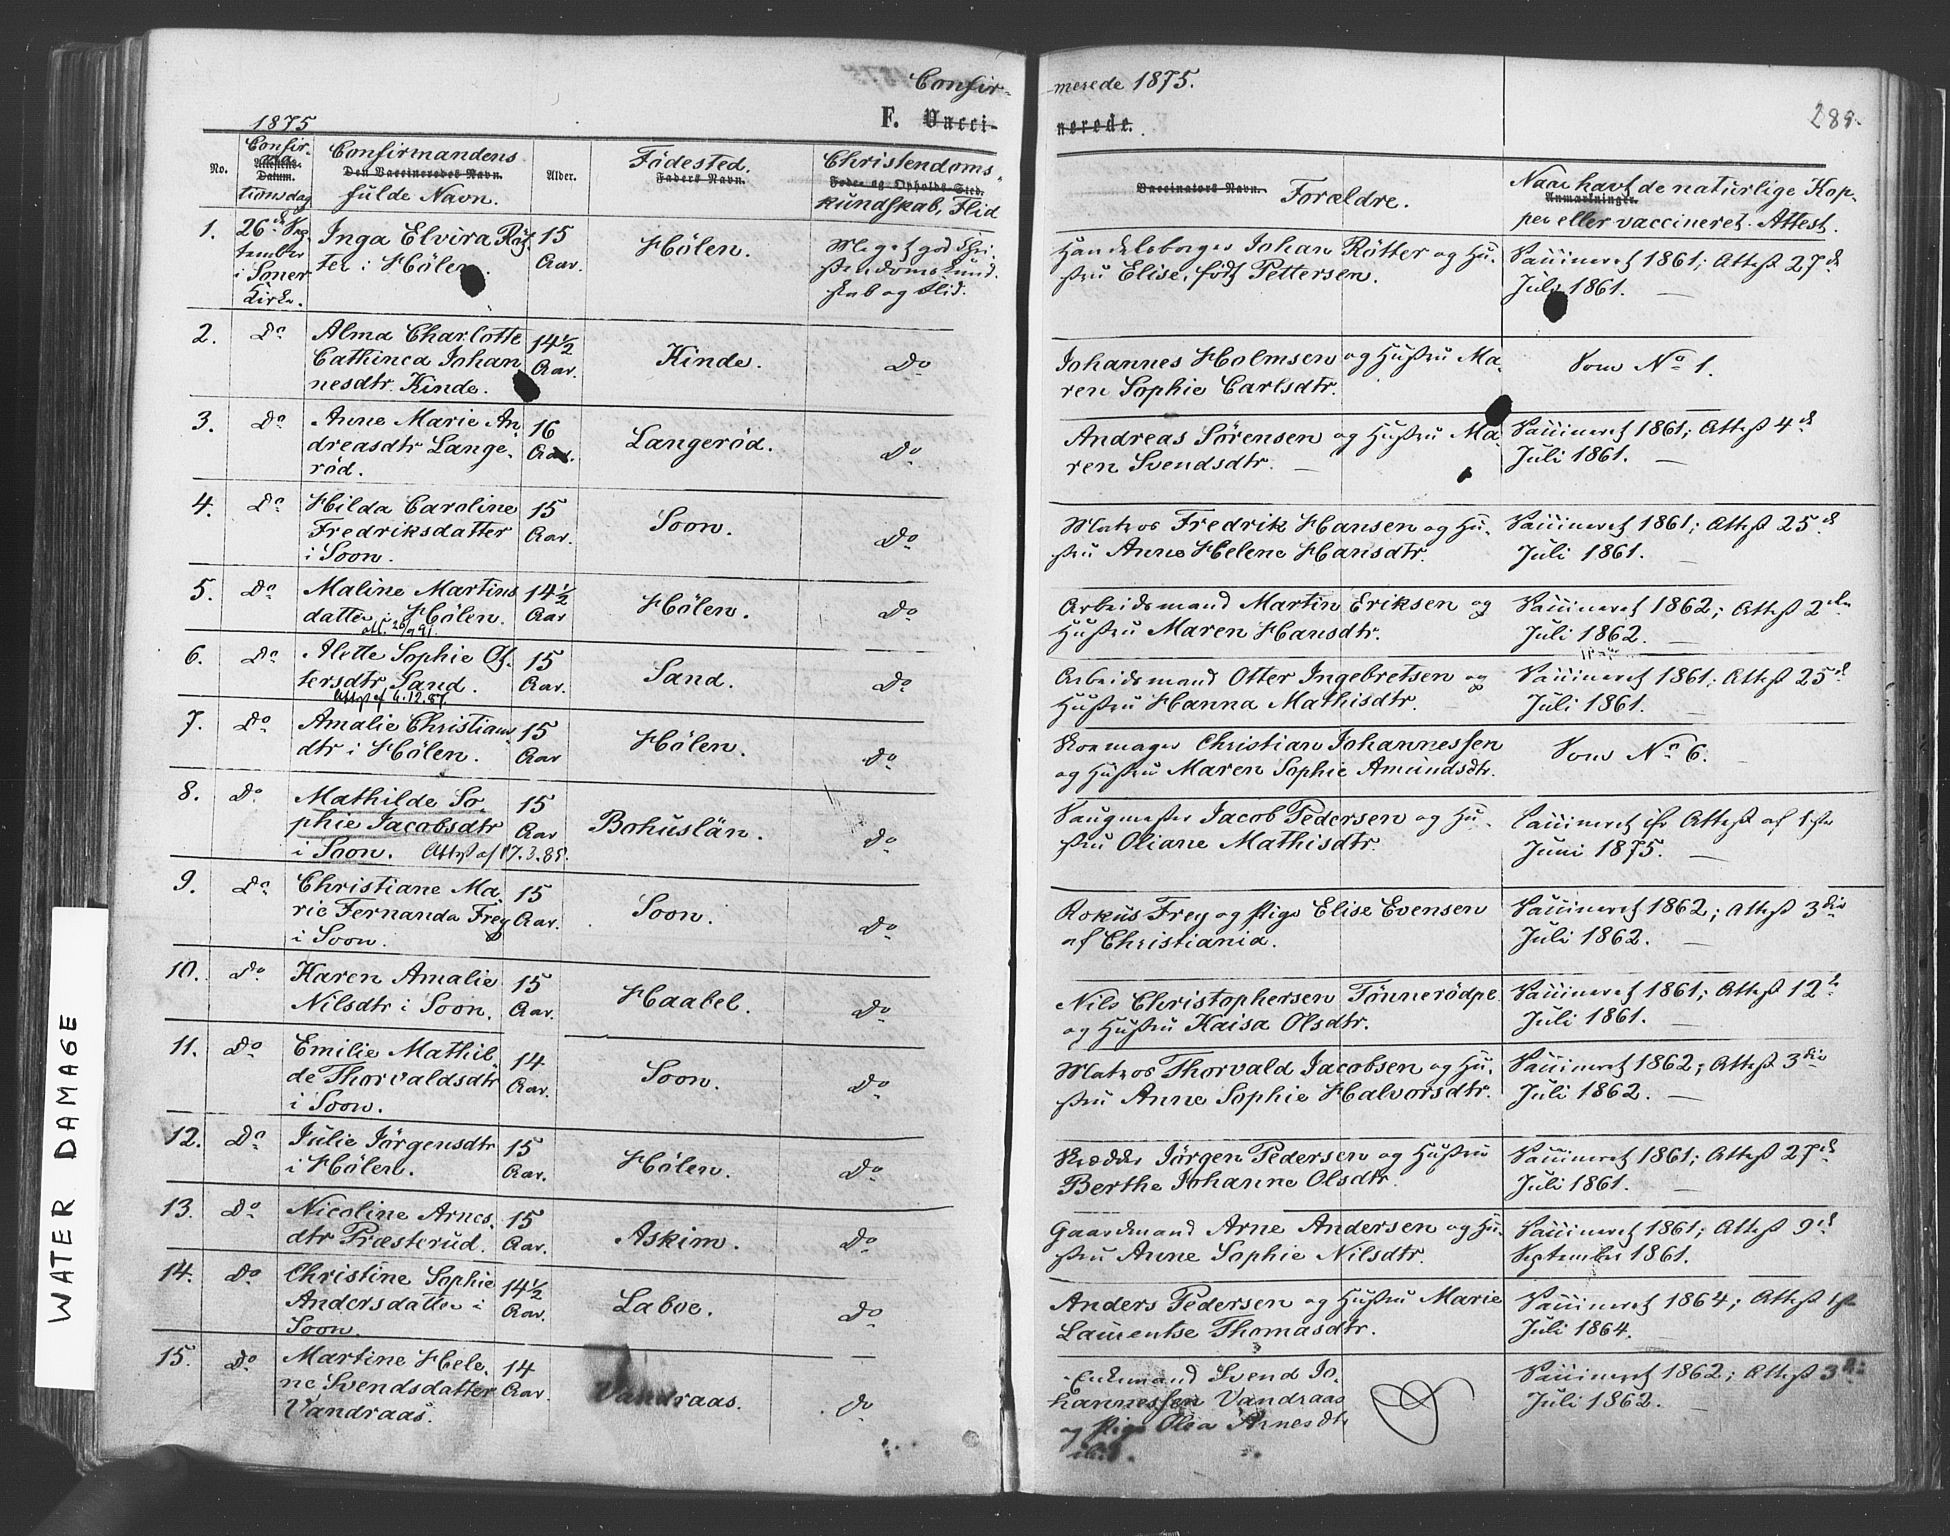 Confir-
merede 1875.
1875
F. Vacci-
nerede.
289.
No.
Confir-
ma-
Attestens
Datum.
tionsdag
Confirmandens
Den Vaccineredes Navn.
fulde Navn.
Alder.
Fødested.
Faders Navn.
Christendoms-
Føde- og Opholds-Sted.
kundskab, Flid
Vaccinators Navn. Forældre.
Naar havt de naturlige Kop-
Anmærkninger.
per eller vaccineret. Attest.
1. 26de Sep-
tember
i Soner
Kirke.
Inga Elvira Röt-
ter i Hölen.
15
Aar.
Hölen.
Meget god Chri-
stendomskund-
skab og Flid.
Handelsborger Johan Rötter og Hu-
stru Elise, født Pettersen.
Vaccineret 1861; Attest 27de
Juli 1861.
2. Do
Alma Charlotte
Cathinca Johan
nesdtr. Kinde.
14½
Aar.
Kinde.
Do
Johannes Holmsen og Hustru Ma-
ren Sophie Carlsdtr.
Som No 1.
3. Do
Anne Marie An
dreasdtr Lange-
röd.
16
Aar.
Langeröd.
Do
Andreas Sörensen og Hustru Ma-
ren Svendsdtr.
Vaccineret 1861; Attest 4de
Juli 1861.
4. Do
Hilda Caroline
Fredriksdatter
i Soon.
15
Aar.
Soon.
Do
Matros Fredrik Hansen og Hu-
stru Anne Helene Hansdtr.
Vaccineret 1861; Attest 25de
Juli 1861.
5. Do
Maline Martins
datter i Hölen.
14½
Aar
Hölen.
Do
Arbeidsmand Martin Eriksen og
Hustru Maren Hansdtr.
Vaccineret 1862; Attest 2den
Juli 1862.
6. Do
Alette Sophie Ot-
tersdtr Sand.
Attest af 6.12.87.
15
Aar.
Sand.
Do
Arbeidsmand Otter Ingebretsen og
Hustru Hanna Mathisdtr.
Vaccineret 1861; Attest 25de
Juli 1861.
7. Do
Amalie Christians
dtr i Hölen.
15
Aar
Hölen.
Do
Skomager Christian Johannessen
og Hustru Maren Sophie Amundsdtr.
Som No 6.
8. Do
Mathilde So-
phie Jacobsdtr
i Soon. Attest af 17.3.85.
15
Aar
Bohuslän.
Do
Saugmester Jacob Pedersen og Hu-
stru Oliane Mathisdtr.
Vaccineret ifr Attest af 1ste
Juni 1875.
9. Do
Christiane Ma-
rie Fernanda Frey
i Soon.
15
Aar.
Soon.
Do
Rokus Frey og Pige Elise Evensen
af Christiania.
Vaccineret 1862; Attest 3die
Juli 1862.
10. Do
Karen Amalie
Nilsdtr i Soon.
15
Aar.
Haabel.
Do
Nils Christophersen Tönnerödpe.
og Hustru Kaisa Olsdtr.
Vaccineret 1861; Attest 12te
Juli 1861.
11. Do
Emilie Mathil
de Thorvaldsdtr
i Soon.
14
Aar.
Soon.
Do
Matros Thorvald Jacobsen og Hu-
stru Anne Sophie Halvorsdtr.
Vaccineret 1862; Attest 3die
Juli 1862.
12. Do
Julie Jörgensdtr
i Hölen.
15
Aar.
Hölen.
Do
Skrædder Jörgen Pedersen og Hustru
Berthe Johanne Olsdtr.
Vaccineret 1861; Attest 27de
Juli 1861.
13. Do
Nicoline Arnes-
dtr Præsterud.
15
Aar.
Askim.
Do
Gaardmand Arne Andersen og Hu-
stru Anne Sophie Nilsdtr.
Vaccineret 1861; Attest 9de
September 1861.
14. Do
Christine Sophie
Andersdatter i
Soon.
14½
Aar.
Laboe.
Do
Anders Pedersen og Hustru Marie
Laurentse Thomasdtr.
Vaccineret 1864; Attest 1ste
Juli 1864.
15. Do
Martine Hele-
ne, Svendsdatter
Vandraas.
14
Aar.
Vandraas.
Do
Enkemand Svend Jo-
hannessen Vandraas
og Pige Olea Arnesdtr
ibid.
Vaccineret 1862; Attest 3die
Juli 1862.
WATER DAMAGE